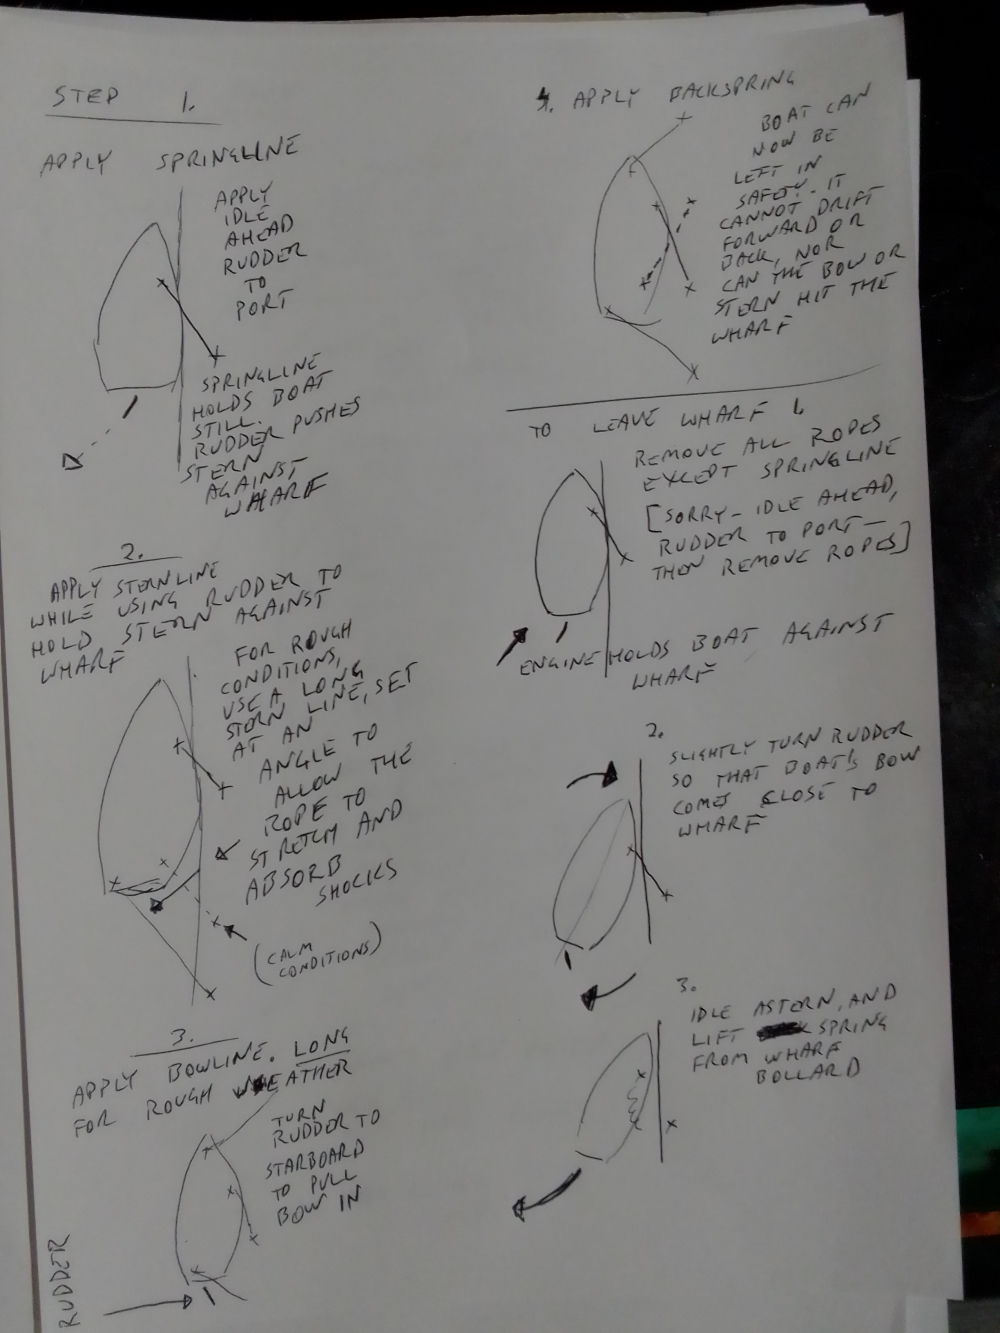 STEP 1.
APPLY SPRINGLINE
APPLY
IDLE
AHEAD
RUDDER
TO
PORT
SPRINGLINE
HOLDS BOAT
STILL.
RUDDER PUSHES
STERN
AGAINST
WHARF
2.
APPLY STERNLINE
WHILE USING RUDDER TO
HOLD STERN AGAINST
WHARF
FOR ROUGH
CONDITIONS,
USE A LONG
STERN LINE, SET
AT AN
ANGLE TO
ALLOW THE
ROPE TO
STRETCH AND
ABSORB
SHOCKS
(CALM
CONDITIONS)
3.
APPLY BOWLINE. LONG
FOR ROUGH WEATHER
TURN
RUDDER TO
STARBOARD
TO PULL
BOW IN
RUDDER
4. APPLY BACKSPRING
BOAT CAN
NOW BE
LEFT IN
SAFETY. IT
CANNOT DRIFT
FORWARD OR
BACK, NOR
CAN THE BOW OR
STERN HIT THE
WHARF
TO LEAVE WHARF 1.
REMOVE ALL ROPES
EXCEPT SPRINGLINE
[SORRY - IDLE AHEAD,
RUDDER TO PORT -
THEN REMOVE ROPES]
ENGINE HOLDS BOAT AGAINST
WHARF
2.
SLIGHTLY TURN RUDDER
SO THAT BOAT'S BOW
COMES CLOSE TO
WHARF
3.
IDLE ASTERN, AND
LIFT SPRING
FROM WHARF
BOLLARD